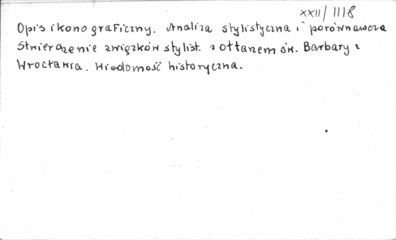 XXII/1118
Opis ikonograficzny. Analiza stylistyczna i porównawcza
Stwierdzenie związków stylist. z ołtarzem św. Barbary z
Wrocławia. Wiadomość historyczna.